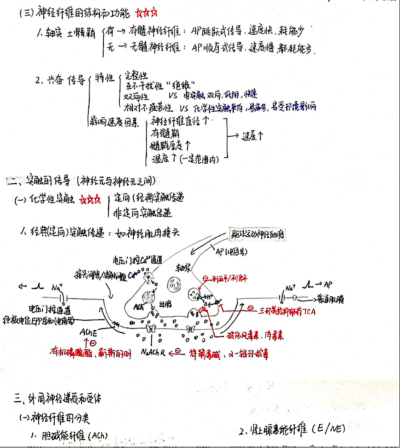 (三) 神经纤维的结构和功能 ☆☆☆
1. 轴突 ± 髓鞘
有 → 有髓神经纤维: AP跳跃式传导, 速度快, 耗能少
无 → 无髓神经纤维: AP 传导, 速度慢, 耗能多
2. 兴奋传导
特性
完整性
互不干扰性 "绝缘"
双向性 VS 电突触 双向, 快速
相对不疲劳性 VS 化学性突触 单向, 易疲劳, 易受环境影响
影响速度因素
神经纤维直径↑
有髓鞘
髓鞘厚度↑
温度↑ (一定范围内)
→ 速度↑
二、突触的传导 (神经元与神经元之间)
(一) 化学性突触 ☆☆☆
定向 (经典突触传递)
非定向突触传递
1. 经典(定向)突触传递: 如神经肌肉接头
AP (电信号)
电压门控Ca²⁺通道
Ca²⁺
轴突
Na⁺
ACh
出胞
Na⁺
AP
电压门控通道
AChE
有机磷酸酯, 新斯的明
N₂AChR
筒箭毒碱, α-银环蛇毒
三、外周神经递质和受体
(一) 神经纤维的分类
1. 胆碱能纤维 (ACh)
2. 肾上腺素能纤维 (E/NE)